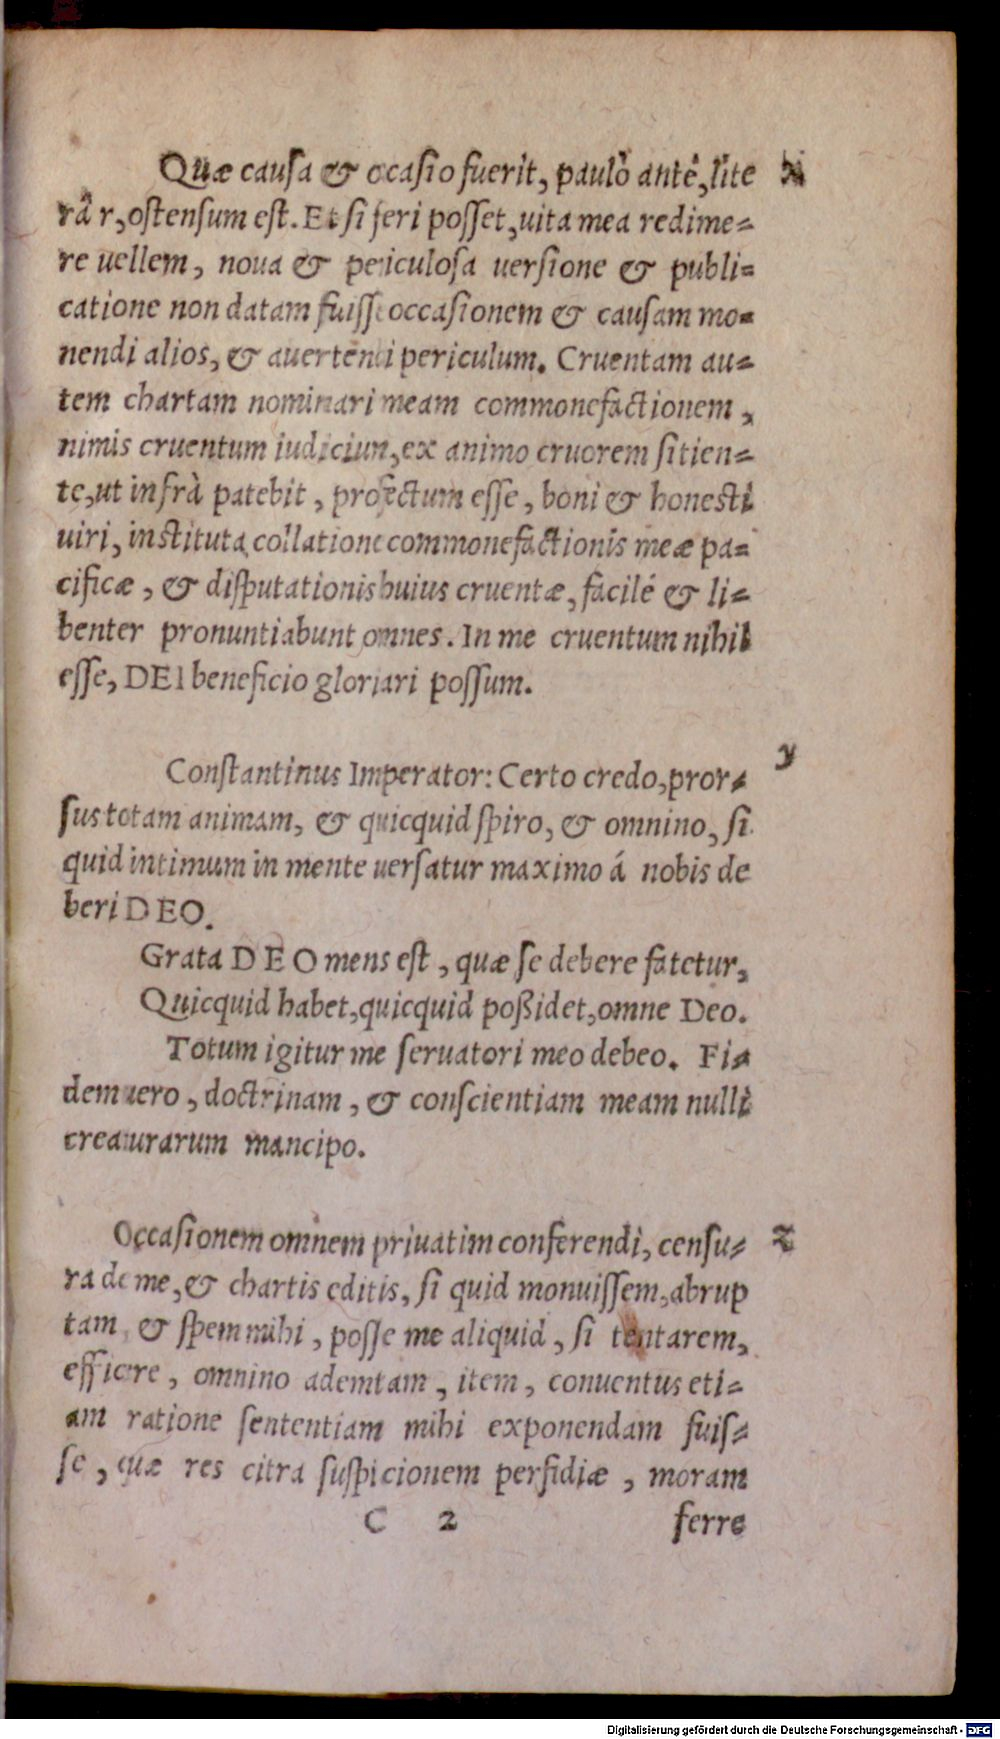 Quæ causa & ocasio fuerit, paulò antè, lite x
râ r, ostensum est. Et si feri posset, uita mea redime=
re uellem, noua & periculosa uersione & publi=
catione non datam fuisse occasionem & causam mo=
nendi alios, & auertendi periculum. Cruentam au=
tem chartam nominari meam commonefactionem,
nimis cruentum iudicium, ex animo cruorem sitien=
te, ut infrà patebit, profectum esse, boni & honesti
uiri, instituta collatione commonefactionis meæ pa=
cificæ, & disputationis huius cruentæ, facilé & li=
benter pronuntiabunt omnes. In me cruentum nihil
esse, DEI beneficio gloriari possum.
Constantinus Imperator: Certo credo, pror= y
sus totam animam, & quicquid spiro, & omnino, si
quid intimum in mente uersatur maximo á nobis de
beri DEO.
Grata DEO mens est, quæ se debere fatetur,
Quicquid habet, quicquid poßidet, omne Deo.
Totum igitur me seruatori meo debeo. Fi=
dem uero, doctrinam, & conscientiam meam nulli
creaturarum mancipo.
Occasionem omnem priuatim conferendi, censu= z
ra de me, & chartis editis, si quid monuissem, abrup
tam, & spem mihi, posse me aliquid, si tentarem,
efficere, omnino ademtam, item, conuentus eti=
am ratione sententiam mihi exponendam fuis=
se, quæ res citra suspicionem perfidiæ, moram
C 2 ferre
Digitalisierung gefördert durch die Deutsche Forschungsgemeinschaft - DFG